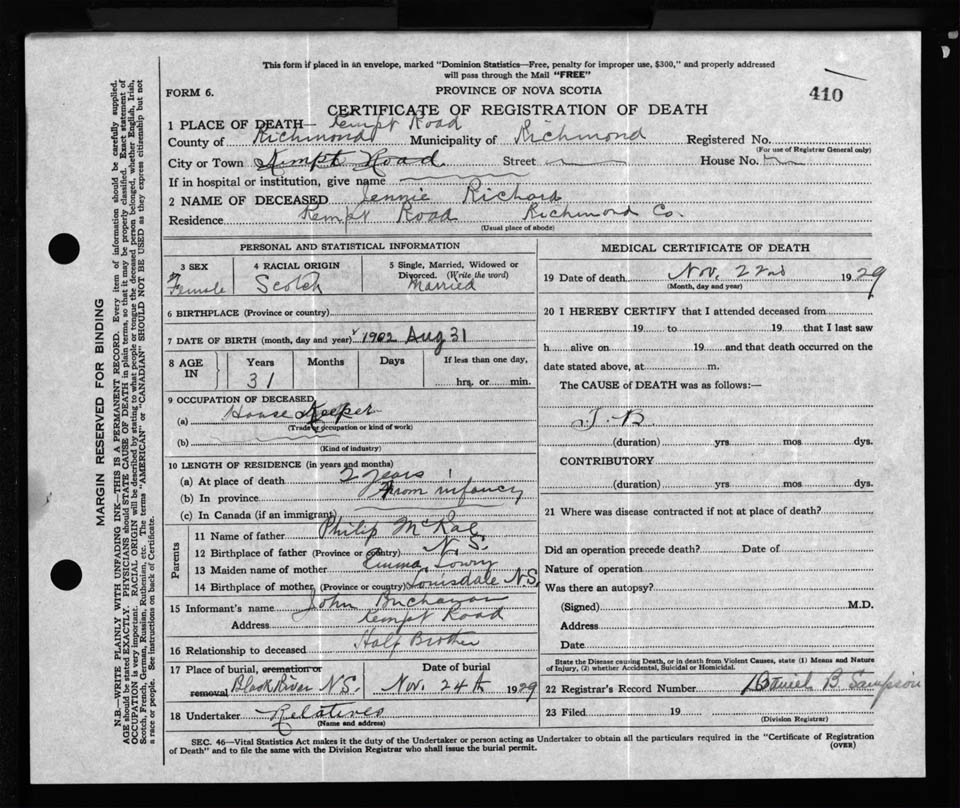 This form if placed in an envelope, marked "Dominion Statistics—Free, penalty for improper use, $300," and properly addressed
will pass through the Mail "FREE"
FORM 6.
PROVINCE OF NOVA SCOTIA
410
CERTIFICATE OF REGISTRATION OF DEATH
1 PLACE OF DEATH— Kempt Road
County of Richmond Municipality of Richmond Registered No.
(For use of Registrar General only)
City or Town Kempt Road Street House No.
If in hospital or institution, give name
2 NAME OF DECEASED Jennie Richard
Residence Kempt Road Richmond Co.
(Usual place of abode)
PERSONAL AND STATISTICAL INFORMATION
3 SEX
Female
4 RACIAL ORIGIN
Scotch
5 Single, Married, Widowed or
Divorced. (Write the word)
Married
6 BIRTHPLACE (Province or country)
7 DATE OF BIRTH (month, day and year) 1902 Aug 31
8 AGE IN
Years Months Days If less than one day,
31 hrs. or min.
9 OCCUPATION OF DECEASED
(a) House Keeper
(Trade or occupation or kind of work)
(b)
(Kind of industry)
10 LENGTH OF RESIDENCE (in years and months)
(a) At place of death 2 years
(b) In province From infancy
(c) In Canada (if an immigrant)
Parents
11 Name of father Philip McRae
12 Birthplace of father (Province or country) N.S.
13 Maiden name of mother Emma Lowry
14 Birthplace of mother (Province or country) Louisdale N.S.
15 Informant's name John Buchanan
Address Kempt Road
16 Relationship to deceased Half Brother
17 Place of burial, cremation or
removal Black River N.S.
Date of burial
Nov. 24th 1929
18 Undertaker Relatives
(Name and address)
MEDICAL CERTIFICATE OF DEATH
19 Date of death Nov. 22nd 1929
(Month, day and year)
20 I HEREBY CERTIFY that I attended deceased from
19 to 19 that I last saw
h alive on 19 and that death occurred on the
date stated above, at m.
The CAUSE of DEATH was as follows:—
T.B.
(duration) yrs mos dys.
CONTRIBUTORY
(duration) yrs mos dys.
21 Where was disease contracted if not at place of death?
Did an operation precede death? Date of
Nature of operation
Was there an autopsy?
(Signed) M.D.
Address
Date
State the Disease causing Death, or in death from Violent Causes, state (1) Means and Nature
of Injury, (2) whether Accidental, Suicidal or Homicidal.
22 Registrar's Record Number B Sampson
23 Filed 19
(Division Registrar)
SEC. 46—Vital Statistics Act makes it the duty of the Undertaker or person acting as Undertaker to obtain all the particulars required in the "Certificate of Registration
of Death" and to file the same with the Division Registrar who shall issue the burial permit.
(OVER)
MARGIN RESERVED FOR BINDING
N.B.—WRITE PLAINLY WITH UNFADING INK—THIS IS A PERMANENT RECORD. Every item of information should be carefully supplied.
AGE should be stated EXACTLY. PHYSICIANS should STATE CAUSE OF DEATH in plain terms, so that it may be properly classified. Exact statement of
OCCUPATION is very important. RACIAL ORIGIN will be described by stating to what people or tongue the deceased person belonged, whether English, Irish,
Scotch, French, German, Russian, Ruthenian, etc. The terms "AMERICAN" or "CANADIAN" SHOULD NOT BE USED as they express citizenship but not
a race or people. See instructions on back of Certificate.